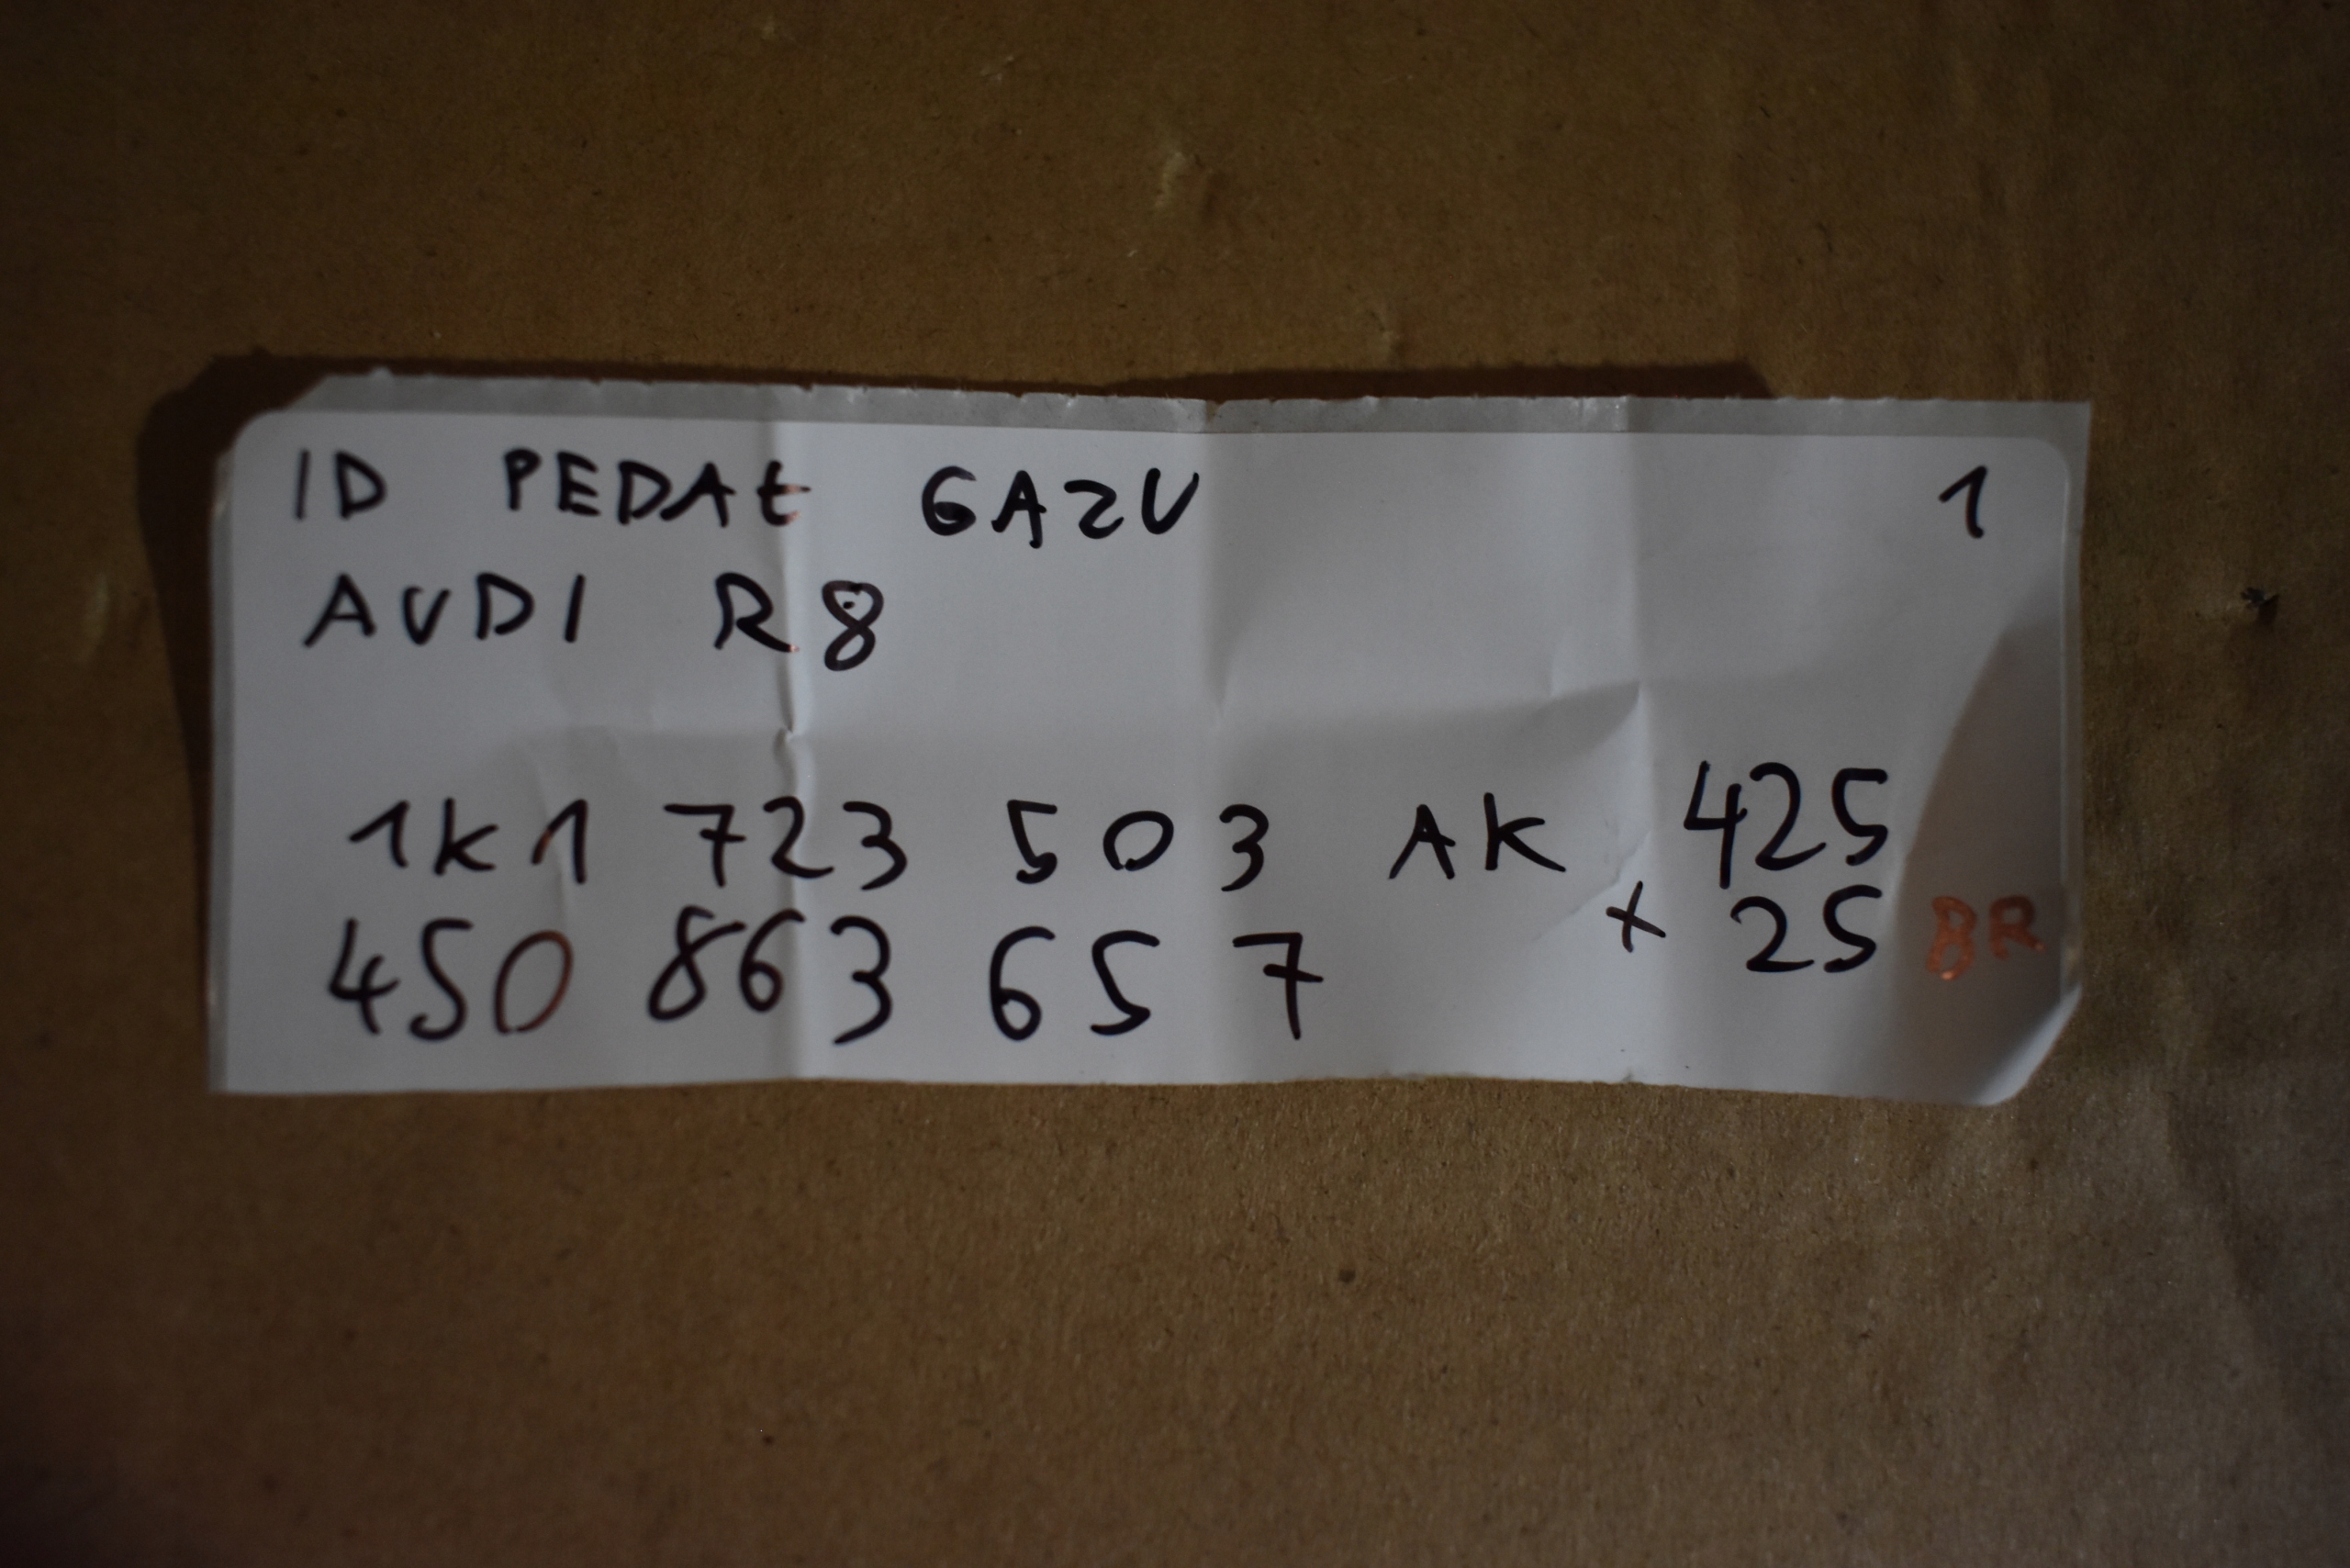 ID PEDAŁ GAZU 1
AUDI R8
1K1 723 503 AK 425
450 863 657 + 25 BR